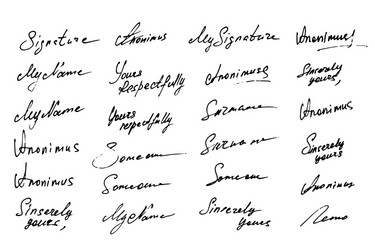 Signature Anonimus MySignature Anonimus!
MyName Yours Respectfully Anonimus Sincerely yours,
MyName Yours respectfully Surname Anonimus
Anonimus Someone Surname Sincerely yours
Anonimus Someone Someone Anonimus
Sinserely yours, MyName Sincerely Yours Nemo